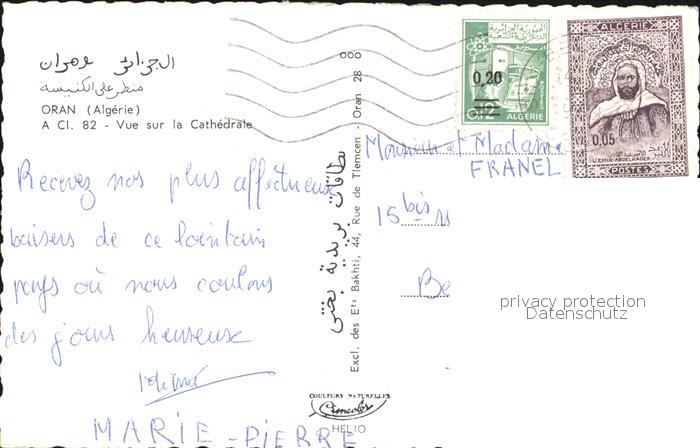 الجزائر وهران
منظر على الكنيسه
ORAN (Algérie)
A Cl. 82 - Vue sur la Cathédrale
Recevez nos plus affectueux
baisers de ce lointain
pays où nous coulons
des jours heureux
MARIE-PIERRE
بطاقات بريدية بختي
Excl. des Ets Bakhti, 44, Rue de Tlemcen - Oran 28
COULEURS NATURELLES
HELIO
0.20
0.12
ALGERIE
ALGERIE
0,05
L'EMIR ABDELKADER
POSTES
Monsieur et Madame
FRANEL
15 bis
Be
privacy protection
Datenschutz